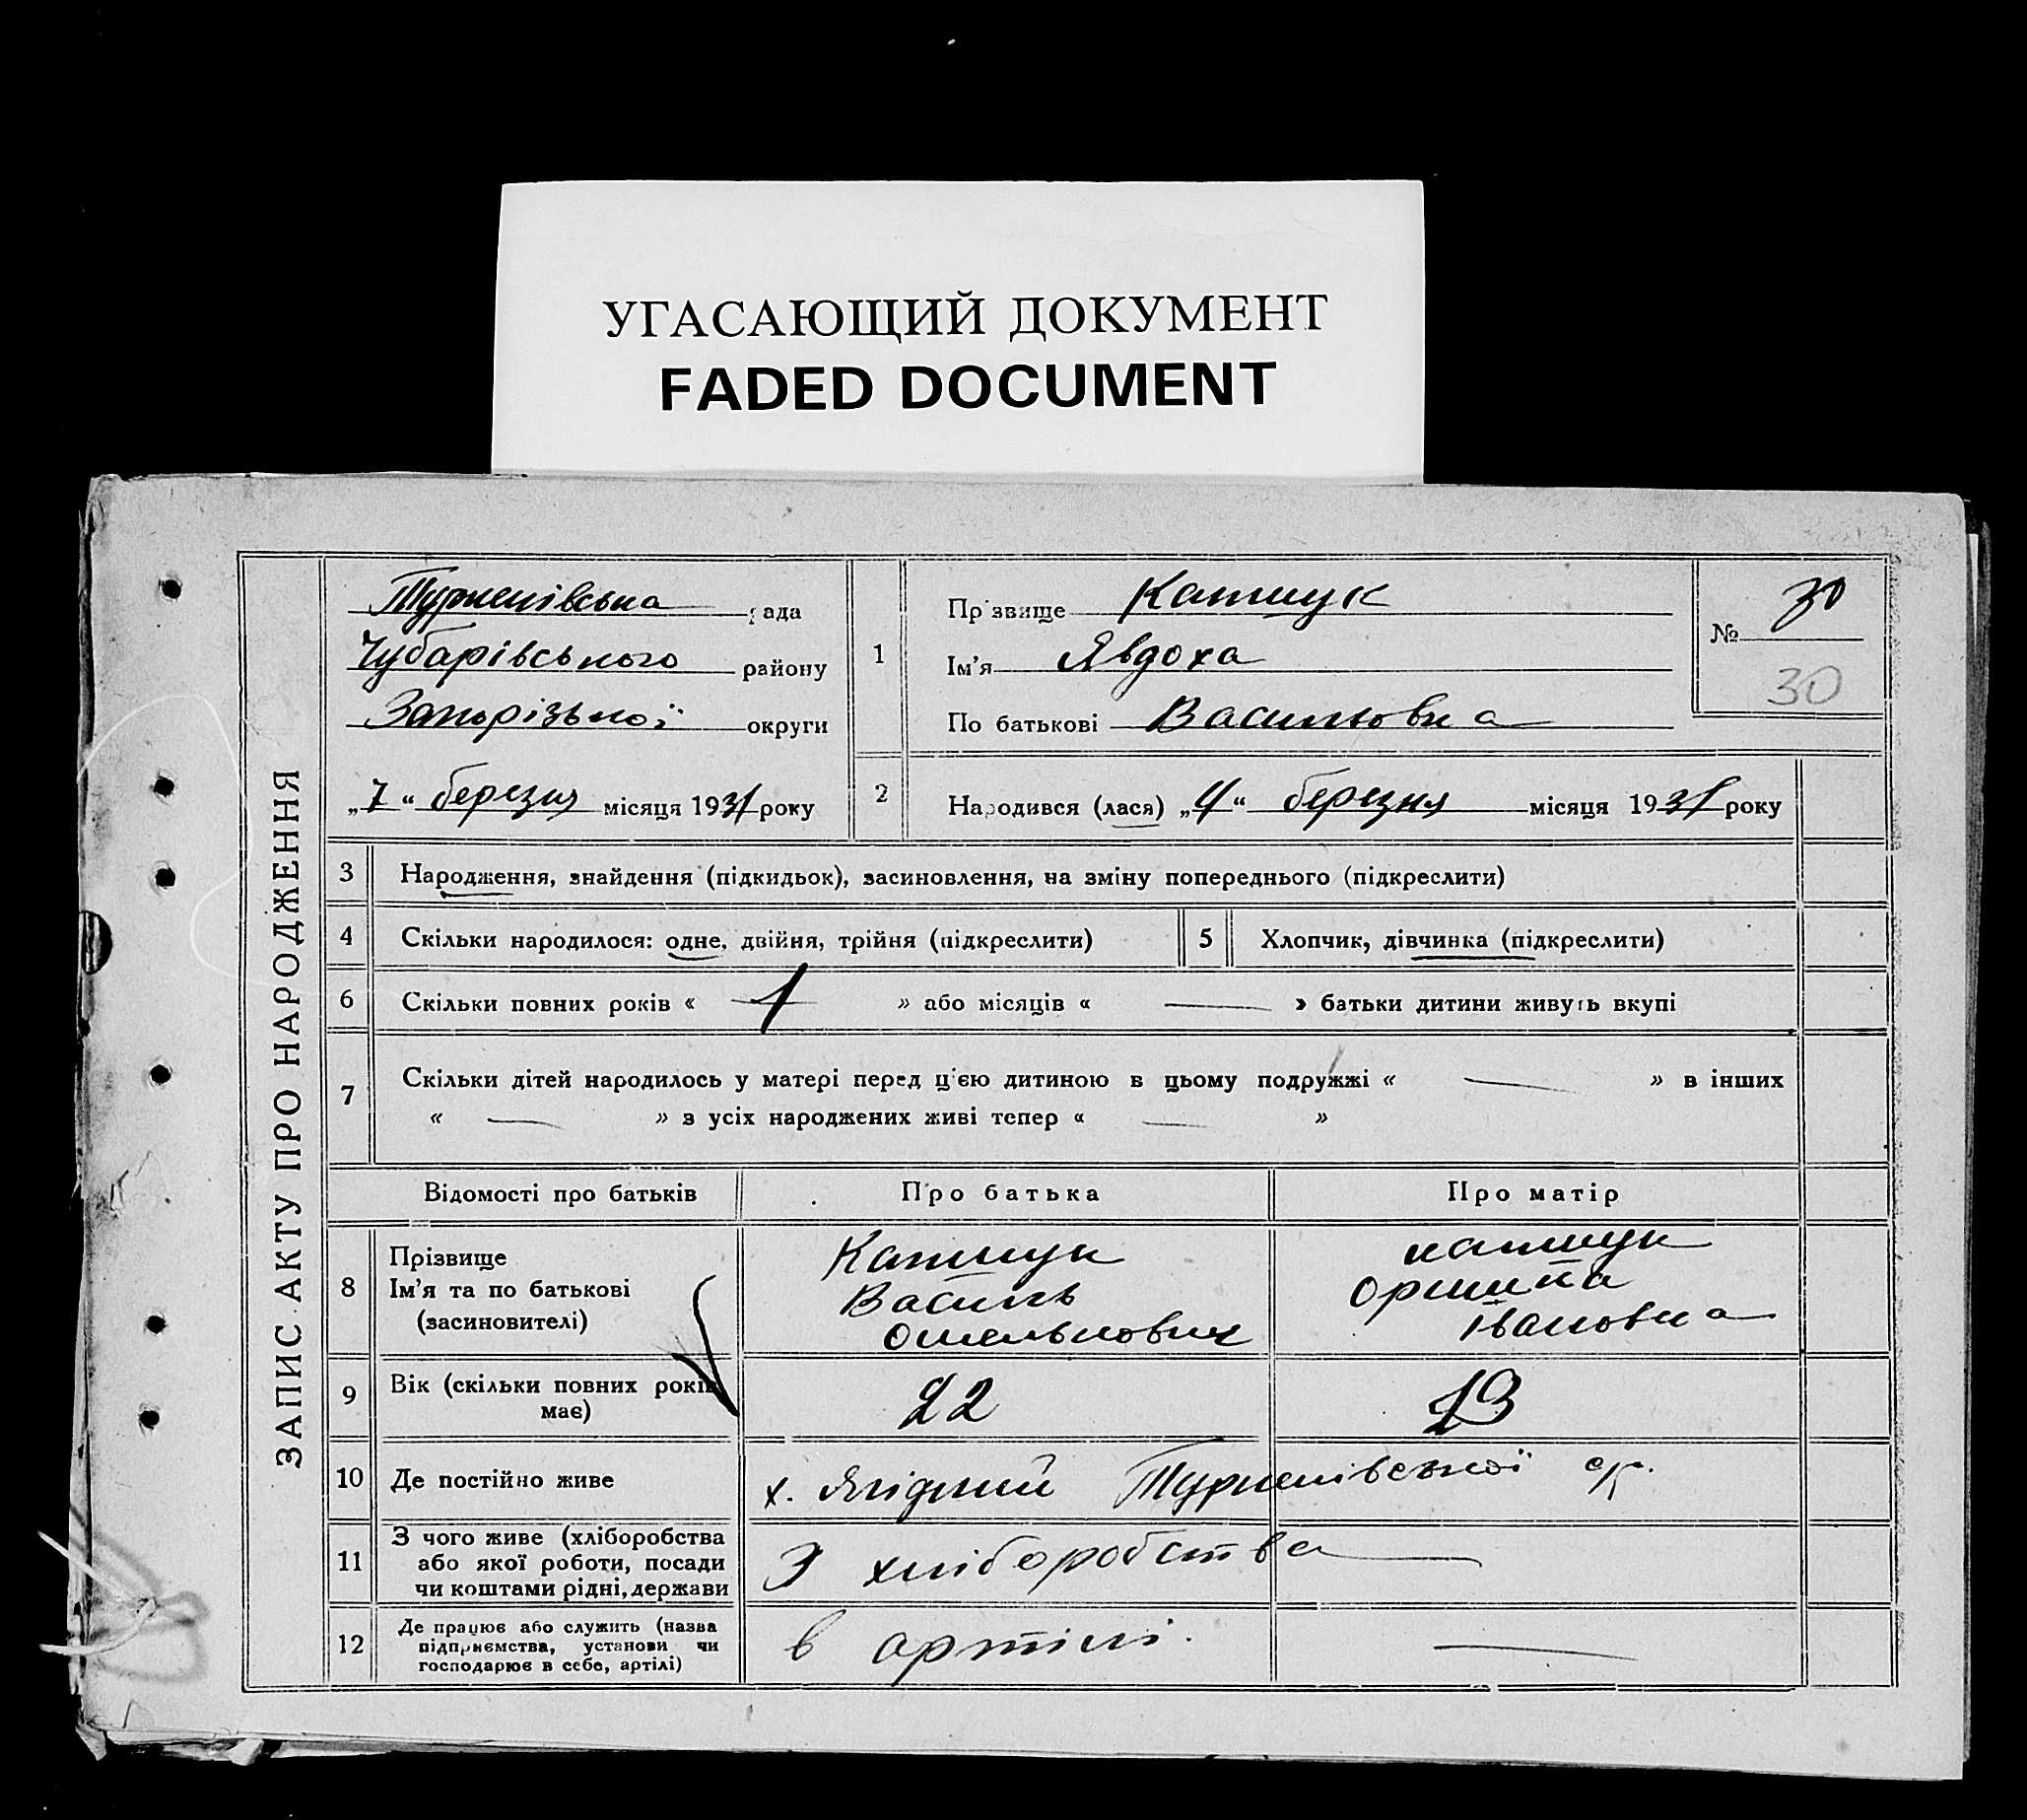 УГАСАЮЩИЙ ДОКУМЕНТ
FADED DOCUMENT
ЗАПИС АКТУ ПРО НАРОДЖЕННЯ
Турненівська рада
Чубарівського району
Запорізької округи
„7“ березня місяця 1931 року
1
Прізвище Капшук
Ім’я Явдоха
По батькові Васильовна
№ 30
30
2
Народився (лася) „4“ березня місяця 1931 року
3 Народження, знайдення (підкидьок), засиновлення, на зміну попереднього (підкреслити)
4 Скільки народилося: одне, двійня, трійня (підкреслити) 5 Хлопчик, дівчинка (підкреслити)
6 Скільки повних років « 1 » або місяців « — » батьки дитини живуть вкупі
7 Скільки дітей народилось у матері перед ц'єю дитиною в цьому подружжі « — » в інших
« — » з усіх народжених живі тепер « — »
Відомості про батьків Про батька Про матір
8
Прізвище
Ім’я та по батькові
(засиновителі)
Капшук
Василь
Омелькович
Капшук
Оришка
Івановна
9 Вік (скільки повних років
має)
22 19
10 Де постійно живе х. Ягідний Турненівської с/р.
11
З чого живе (хліборобства
або якої роботи, посади
чи коштами рідні, держави
З хліборобства
12
Де працює або служить (назва
підприємства, установи чи
господарює в себе, артілі)
в артілі. —